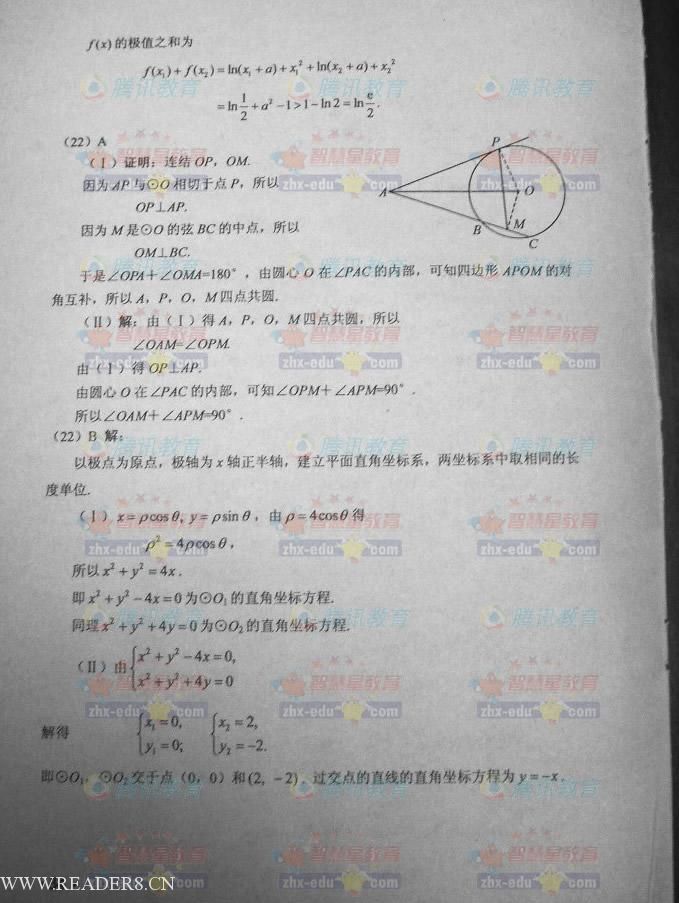 f(x)的极值之和为
f(x₁)+f(x₂)=ln(x₁+a)+x₁²+ln(x₂+a)+x₂²
=ln 1/2 +a²−1>1−ln2=ln e/2.
(22) A
(Ⅰ)证明：连结 OP，OM.
因为 AP 与⊙O 相切于点 P，所以
OP⊥AP.
因为 M 是⊙O 的弦 BC 的中点，所以
OM⊥BC.
于是∠OPA＋∠OMA=180°，由圆心 O 在∠PAC 的内部，可知四边形 APOM 的对
角互补，所以 A，P，O，M 四点共圆.
(Ⅱ)解：由(Ⅰ)得 A，P，O，M 四点共圆，所以
∠OAM=∠OPM.
由(Ⅰ)得 OP⊥AP.
由圆心 O 在∠PAC 的内部，可知∠OPM＋∠APM=90°.
所以∠OAM＋∠APM=90°.
P
A
O
B
M
C
(22) B 解：
以极点为原点，极轴为 x 轴正半轴，建立平面直角坐标系，两坐标系中取相同的长
度单位.
(Ⅰ) x=ρcosθ, y=ρsinθ，由 ρ=4cosθ 得
ρ²=4ρcosθ，
所以 x²+y²=4x.
即 x²+y²−4x=0 为⊙O₁ 的直角坐标方程.
同理 x²+y²+4y=0 为⊙O₂ 的直角坐标方程.
(Ⅱ)由 { x²+y²−4x=0,
x²+y²+4y=0
解得 { x₁=0, { x₂=2,
y₁=0; y₂=−2.
即⊙O₁，⊙O₂ 交于点（0，0）和(2，−2)．过交点的直线的直角坐标方程为 y=−x．
腾讯教育
智慧星教育
zhx-edu com
WWW.READER8.CN